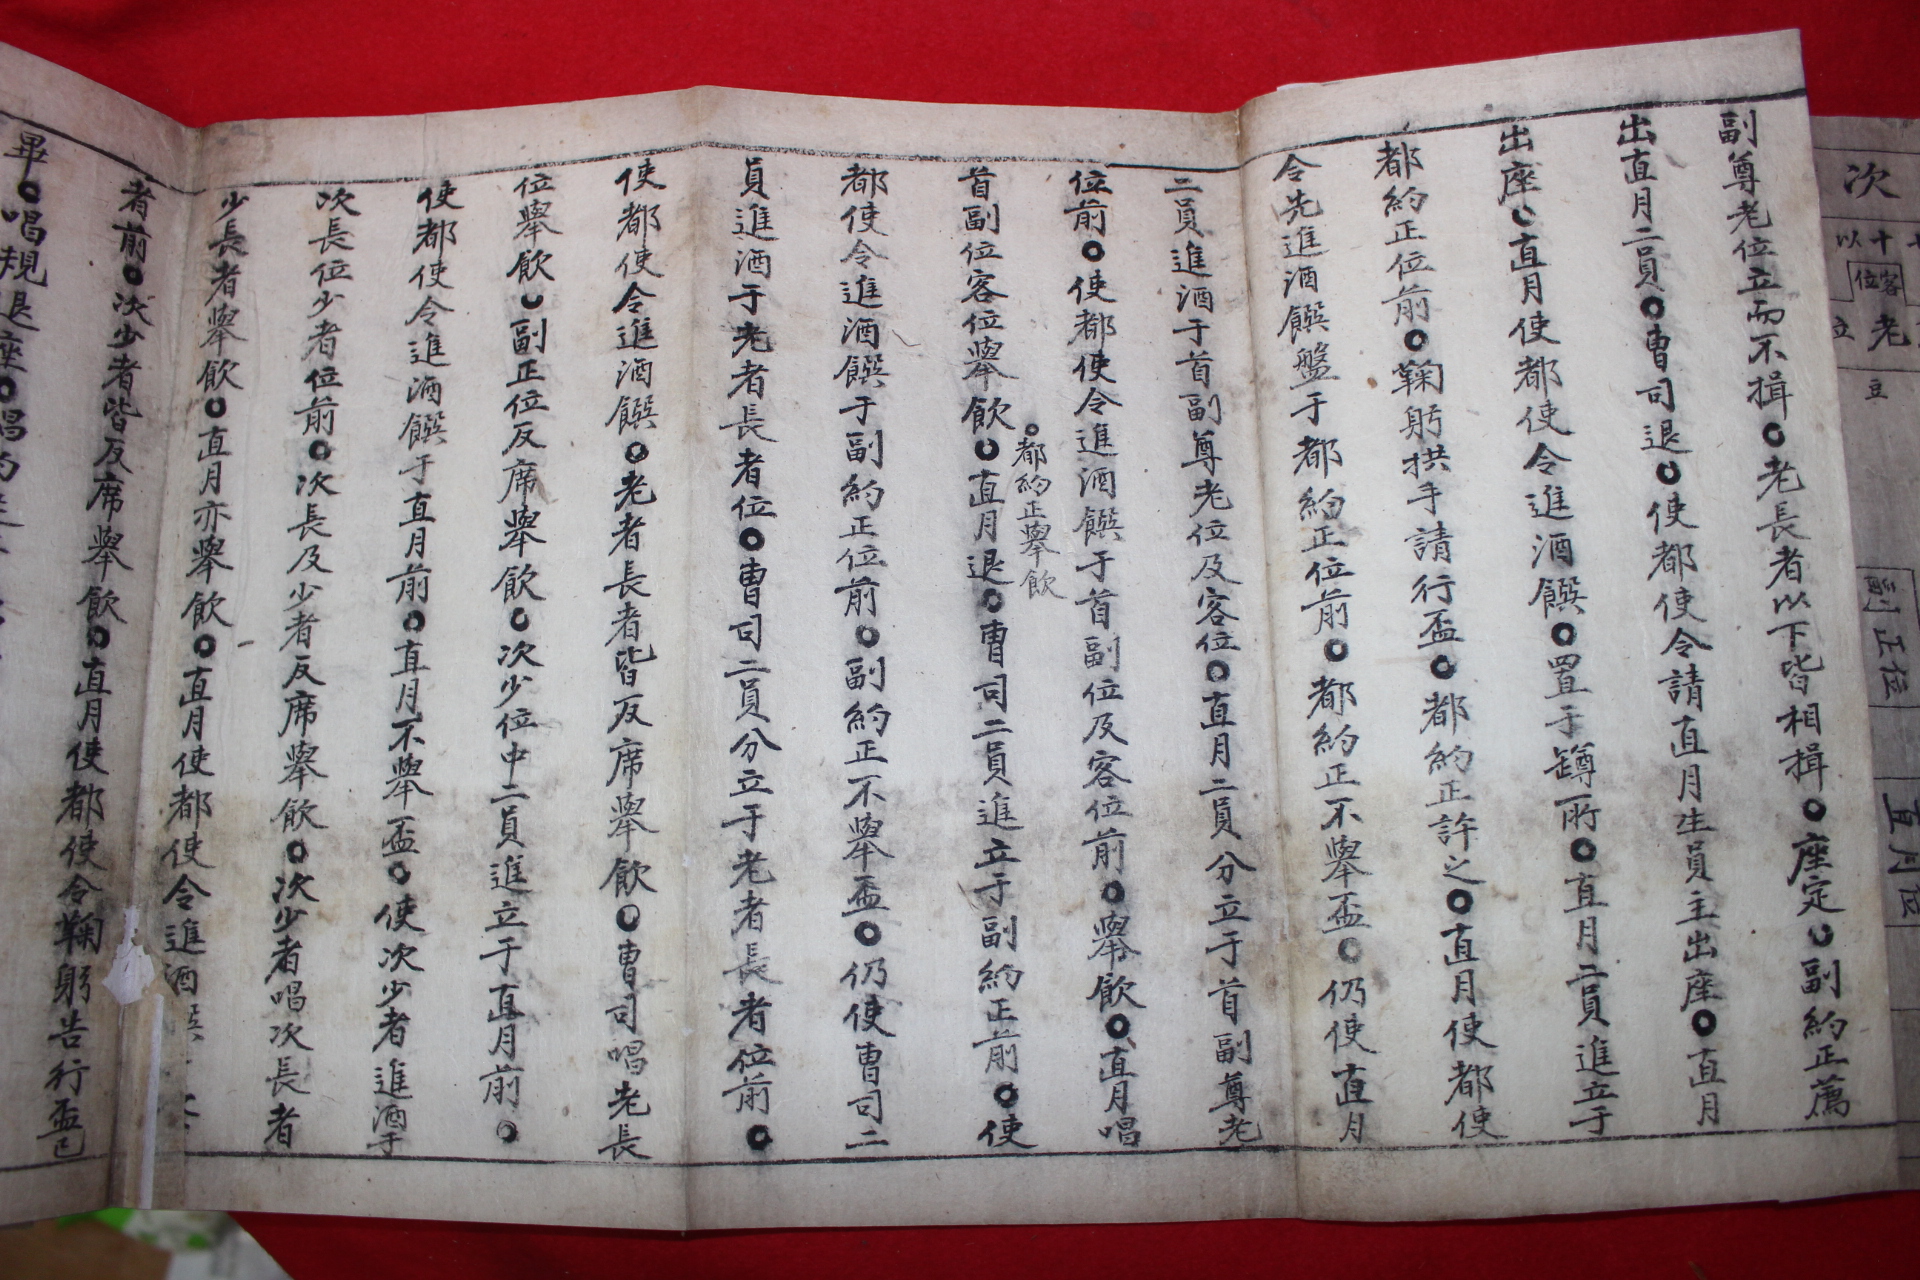 次
十
以
客位
老
立
立
副正位
直月位
副尊老位立而不揖○老長者以下皆相揖○座定○副約正薦
出直月二員○曹司退○使都使令請直月生員主出座○直月
出座○直月使都使令進酒饌○置于罇所○直月二員進立于
都約正位前○鞠躬拱手請行盃○都約正許之○直月使都使
令先進酒饌盤于都約正位前○都約正不擧盃○仍使直月
二員進酒于首副尊老位及客位○直月二員分立于首副尊老
位前○使都使令進酒饌于首副位及客位前○擧飮○直月唱
○都約正擧飮
首副位客位擧飮○直月退○曹司二員進立于副約正前○使
都使令進酒饌于副約正位前○副約正不擧盃○仍使曹司二
員進酒于老者長者位○曹司二員分立于老者長者位前○
使都使令進酒饌○老者長者皆反席擧飮○曹司唱老長
位擧飮○副正位反席擧飮○次少位中二員進立于直月前○
使都使令進酒饌于直月前○直月不擧盃○使次少者進酒于
次長位少者位前○次長及少者反席擧飮○次少者唱次長者
少長者擧飮○直月亦擧飮○直月使都使令進酒饌
者前○次少者皆反席擧飮○直月使都使令鞠躬告行盃已
畢○唱規退座○唱約